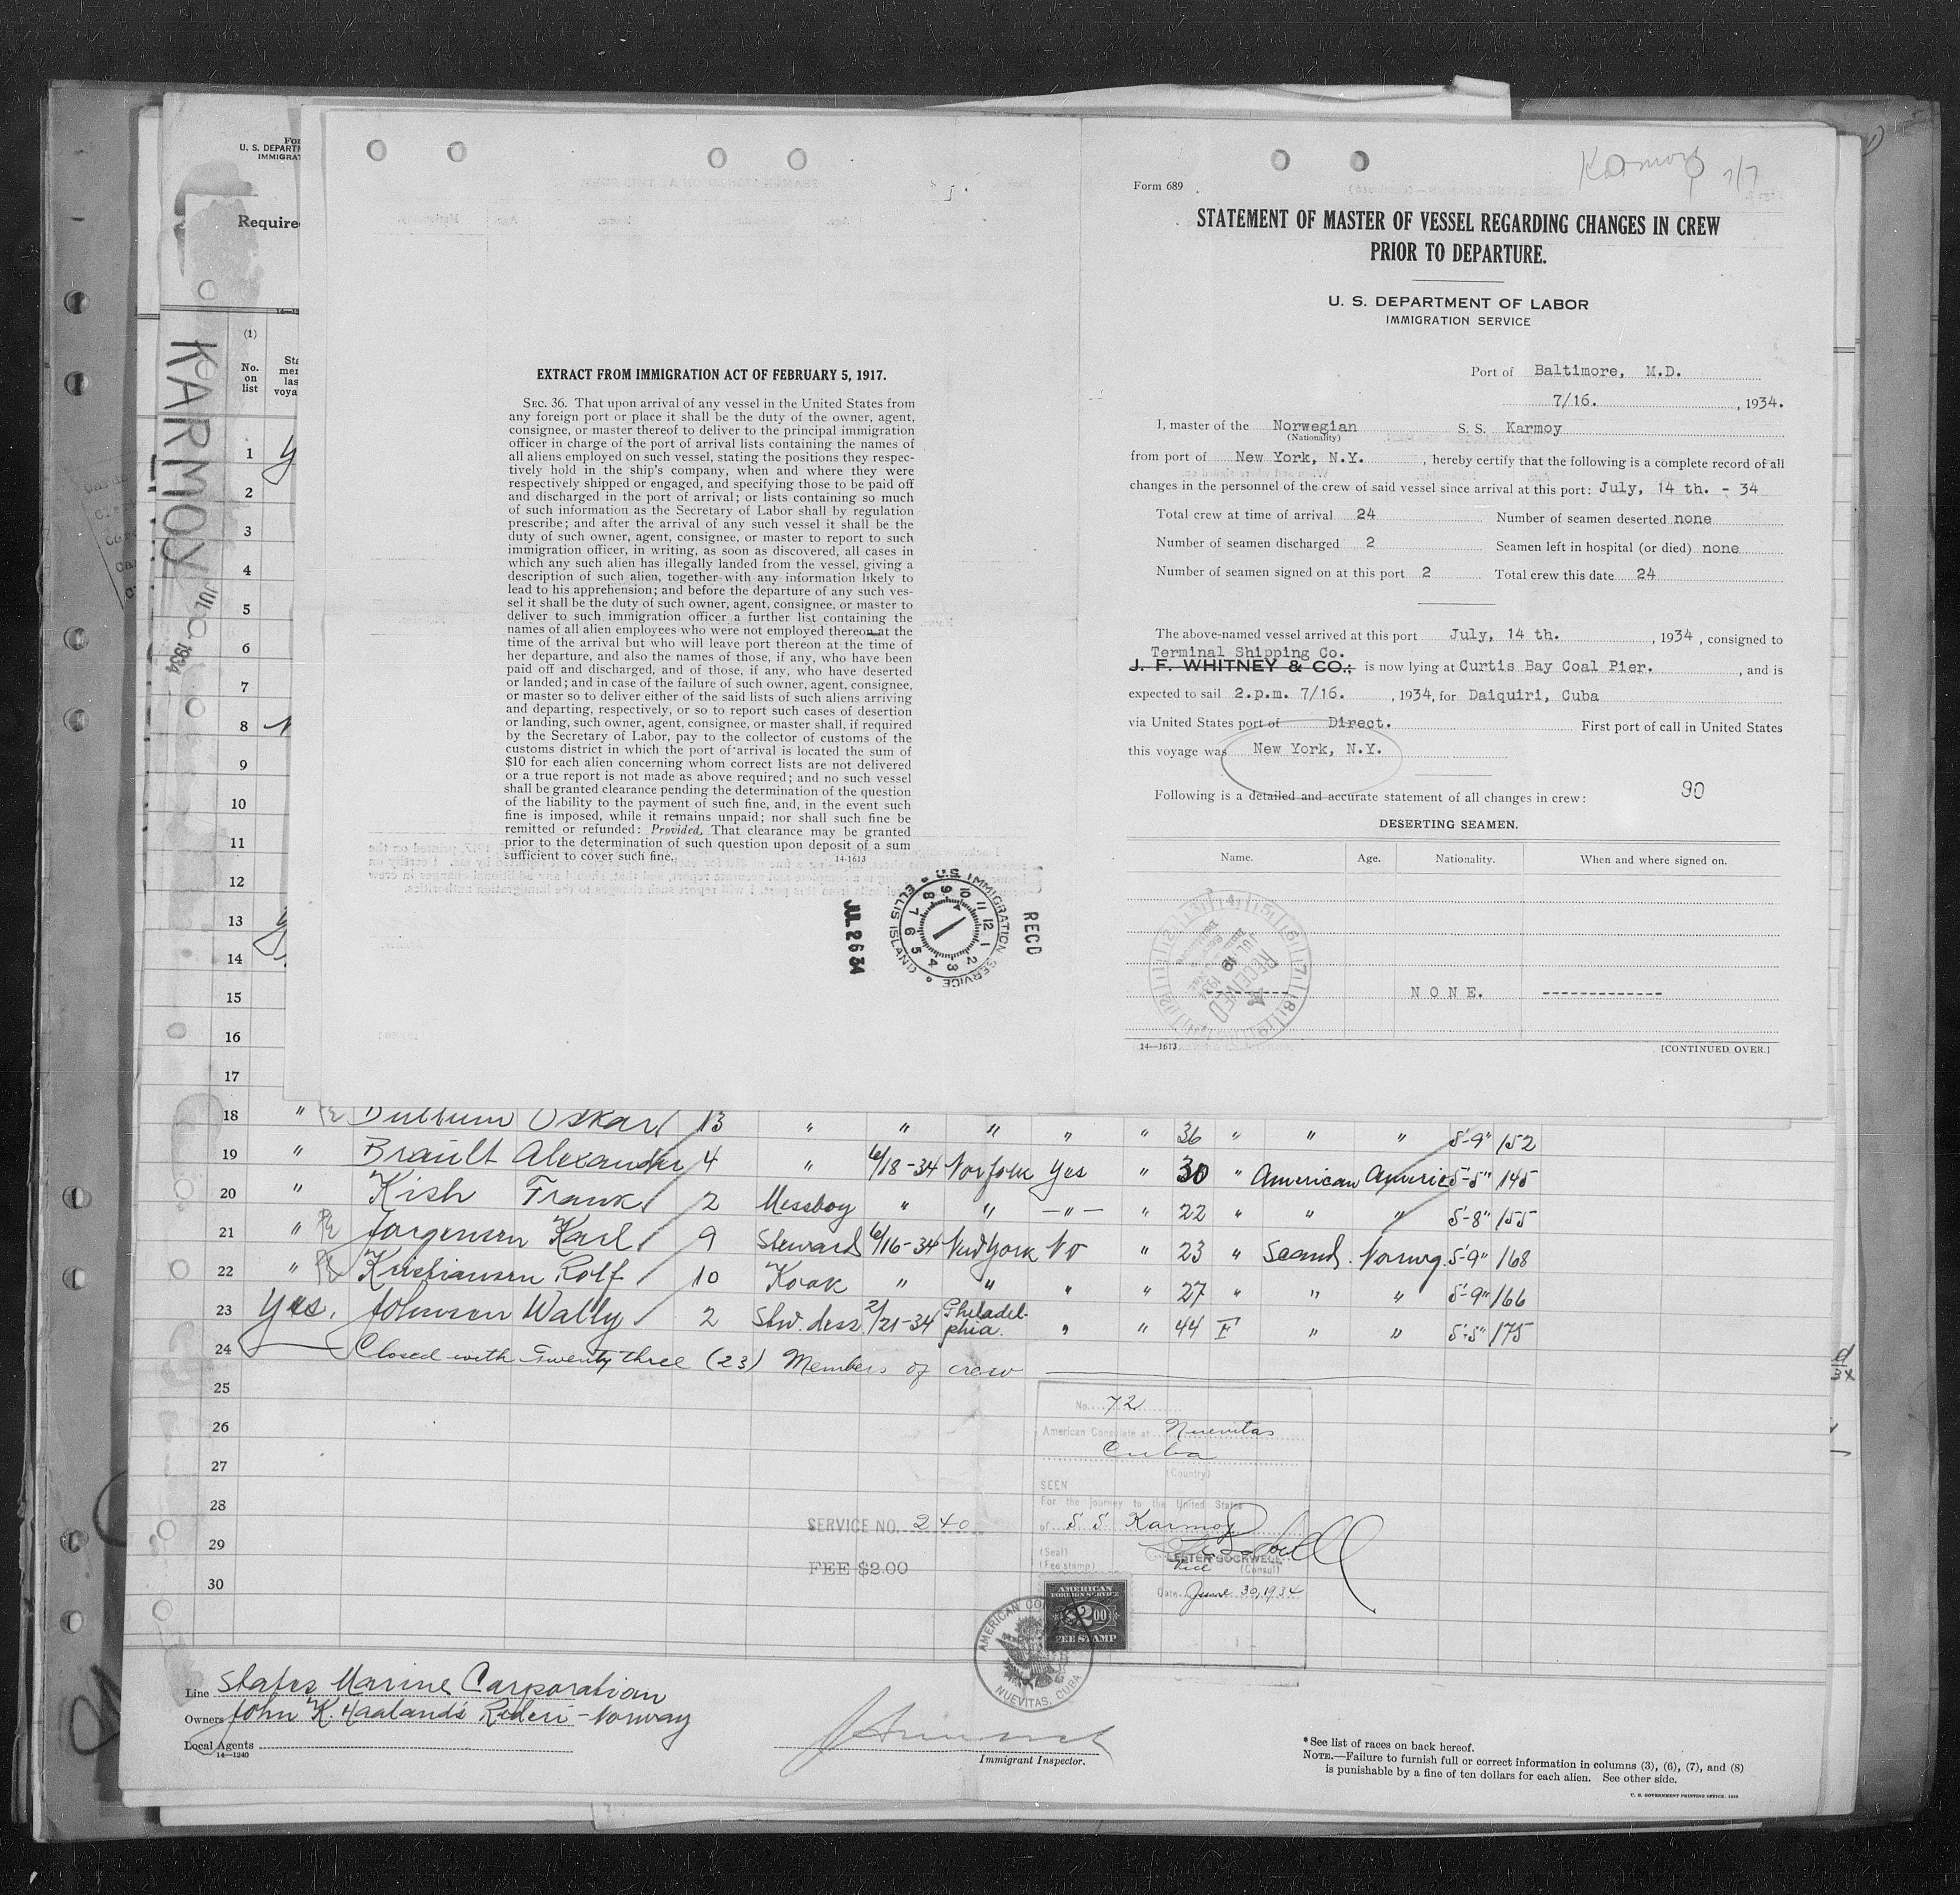 Karmoy 7/7
Form 689
STATEMENT OF MASTER OF VESSEL REGARDING CHANGES IN CREW
PRIOR TO DEPARTURE.
U. S. DEPARTMENT OF LABOR
IMMIGRATION SERVICE
Port of Baltimore, M.D.
7/16. , 1934.
I, master of the Norwegian S. S. Karmoy
(Nationality)
from port of New York, N.Y. , hereby certify that the following is a complete record of all
changes in the personnel of the crew of said vessel since arrival at this port: July, 14 th. - 34
Total crew at time of arrival 24 Number of seamen deserted none
Number of seamen discharged 2 Seamen left in hospital (or died) none
Number of seamen signed on at this port 2 Total crew this date 24
The above-named vessel arrived at this port July, 14 th. , 1934 , consigned to
Terminal Shipping Co.
J. F. WHITNEY & CO.; is now lying at Curtis Bay Coal Pier. , and is
expected to sail 2.p.m. 7/16. , 1934, for Daiquiri, Cuba
via United States port of Direct. First port of call in United States
this voyage was New York, N.Y.
Following is a detailed and accurate statement of all changes in crew: 90
DESERTING SEAMEN.
Name. Age. Nationality. When and where signed on.
RECEIVED
JUL 19 1934
N O N E. -------------
14—1613 [CONTINUED OVER.]
EXTRACT FROM IMMIGRATION ACT OF FEBRUARY 5, 1917.
SEC. 36. That upon arrival of any vessel in the United States from
any foreign port or place it shall be the duty of the owner, agent,
consignee, or master thereof to deliver to the principal immigration
officer in charge of the port of arrival lists containing the names of
all aliens employed on such vessel, stating the positions they respec-
tively hold in the ship's company, when and where they were
respectively shipped or engaged, and specifying those to be paid off
and discharged in the port of arrival; or lists containing so much
of such information as the Secretary of Labor shall by regulation
prescribe; and after the arrival of any such vessel it shall be the
duty of such owner, agent, consignee, or master to report to such
immigration officer, in writing, as soon as discovered, all cases in
which any such alien has illegally landed from the vessel, giving a
description of such alien, together with any information likely to
lead to his apprehension; and before the departure of any such ves-
sel it shall be the duty of such owner, agent, consignee, or master to
deliver to such immigration officer a further list containing the
names of all alien employees who were not employed thereon at the
time of the arrival but who will leave port thereon at the time of
her departure, and also the names of those, if any, who have been
paid off and discharged, and of those, if any, who have deserted
or landed; and in case of the failure of such owner, agent, consignee,
or master so to deliver either of the said lists of such aliens arriving
and departing, respectively, or so to report such cases of desertion
or landing, such owner, agent, consignee, or master shall, if required
by the Secretary of Labor, pay to the collector of customs of the
customs district in which the port of arrival is located the sum of
$10 for each alien concerning whom correct lists are not delivered
or a true report is not made as above required; and no such vessel
shall be granted clearance pending the determination of the question
of the liability to the payment of such fine, and, in the event such
fine is imposed, while it remains unpaid; nor shall such fine be
remitted or refunded: Provided, That clearance may be granted
prior to the determination of such question upon deposit of a sum
sufficient to cover such fine.
14-1613
RECD
U.S. IMMIGRATION SERVICE
ELLIS ISLAND
JUL 26 34
For
U. S. DEPARTM
IMMIGRAT
Require
KARMOY
JUL 1934
(1)
No.
on
list
Sta
mer
las
voya
1
2
3
4
5
6
7
8
9
10
11
12
13
14
15
16
17
18 " Oskar 13 " " " " " 36 " " " 5'-9" 152
19 " Brault Alexander 4 " 6/18-34 Norfolk Yes " 30 " American Americ 5'-5" 145
20 " Kish Frank 2 Messboy " " —"— " 22 " " " 5'-8" 155
21 " Jorgensen Karl 9 Steward 6/16-34 New York No " 23 " Scand. Norwg. 5'-9" 168
22 " Kristiansen Rolf 10 Kook " " " " 27 " " " 5'-9" 166
23 Yes. Johnson Wally 2 Stw.dess 2/21-34 Philadel-phia. " " 44 F " " 5'-5" 175
24 Closed with Twenty three (23) Members of crew
25
26
27
28
29
30
No. 72
American Consulate at Nuevitas
Cuba
(Country)
SEEN
For the journey to the United States
of S S Karmoy
(Seal)
(Fee stamp)
LESTER SOCKWELL
Vice (Consul)
Date June 30, 1934
SERVICE NO. 240
FEE $2.00
AMERICAN
FOREIGN SERVICE
$2.00
FEE STAMP
AMERICAN CO
NUEVITAS, CUBA
Line States Marine Corporation
Owners John K. Haaland's Rederi - Norway
Local Agents
14—1240
Immigrant Inspector.
* See list of races on back hereof.
NOTE.—Failure to furnish full or correct information in columns (3), (6), (7), and (8)
is punishable by a fine of ten dollars for each alien. See other side.
U. S. GOVERNMENT PRINTING OFFICE